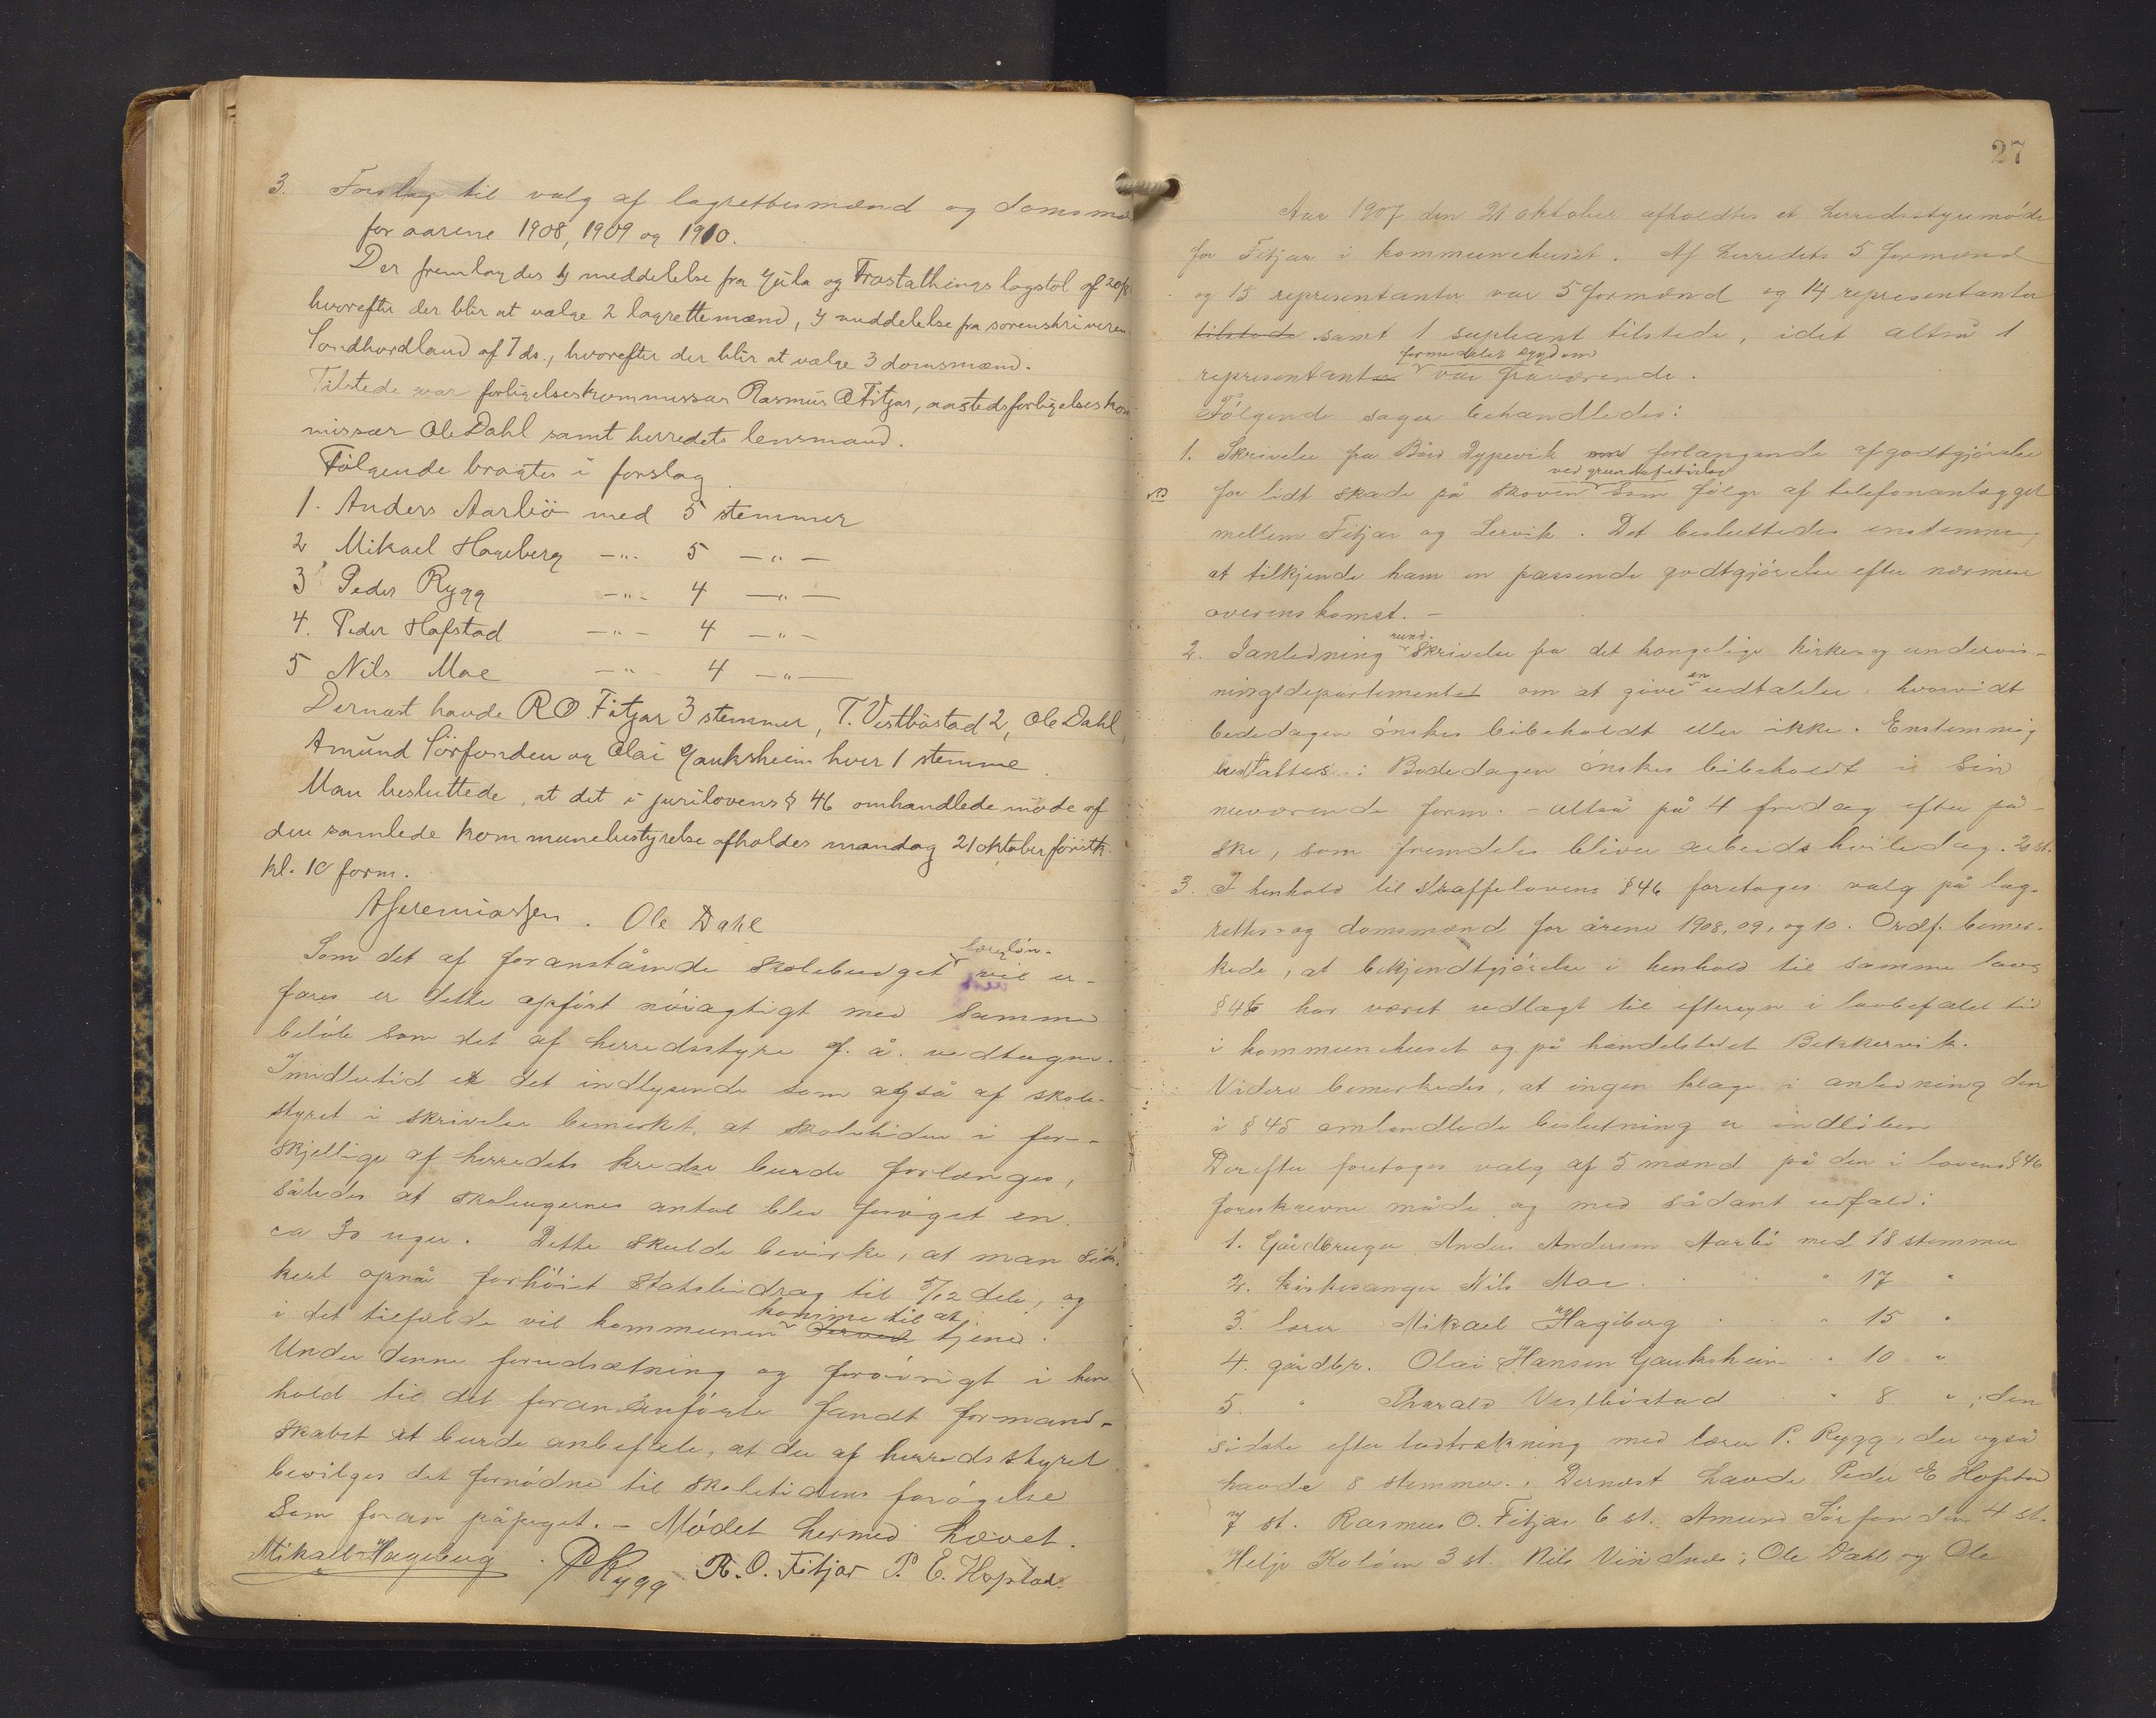 3. Forslag til valg af lagrettesmænd og domsmæ
for aarene 1908, 1909 og 1910.
Der fremlagdes meddelelse fra Gula og Frostathings lagstol af 20/8
hvorefter der blir at vælge 2 lagrettemænd, meddelelse fra sorenskriveren
Søndhordland af 7 ds., hvorefter der blir at vælge 3 domsmænd.
Tilstede var forligelseskommissær Rasmus O Fitjar, aastedsforligelseskom
missær Ole Dahl samt herredets lensmand.
Følgende bragtes i forslag
1. Anders Aarbø med 5 stemmer
2 Mikael Hageberg —"— 5 —"—
3 Peder Rygg —"— 4 —"—
4. Peder Hafstad —"— 4 —"—
5 Nils Moe —"— 4 —"—
Dernæst havde R O. Fitjar 3 stemmer, T. Vestbøstad 2, Ole Dahl,
Amund Sørfonden og Olai Gauksheim hver 1 stemme.
Man besluttede, at det i jurilovens § 46 omhandlede møde af
den samlede kommunebestyrelse afholdes mandag 21 oktober førstk.
kl. 10 form.
A Jeremiassen. Ole Dahl
lærerløn-
Som det af foranstående skolebudget vil er-
fares er dette opført nøiagtigt med samme
beløb som det af herredsstyre f. å. vedtagne.
Imidlertid er det indlysende som også af skole-
styret i skrivelse bemerket, at skoletiden i for-
skjellige af herredets kredse burde forlænges,
således at skoleugernes antal blev forøget en
ca 30 uger. Dette skulde bevirke, at man sik-
kert opnår forhøiet statsbidrag til 5/12 dele, og
komme til at
i det tilfælde vil kommunen derved tjene.
Under denne forudsætning og forøvrigt i hen
hold til det foran anførte fandt formand-
skabet at burde anbefale, at der af herredsstyret
bevilges det fornødne til skoletidens forøgelse
som foran påpeget. – Mødet hermed hævet.
Mikael Hageberg. P Rygg. R. O. Fitjar P. E. Hopstad.
27
Aar 1907 den 21 oktober afholdtes et herredsstyremøde
for Fitjar i kommunehuset. Af herredets 5 formænd
og 15 representanter var 5 formænd og 14 representanter
tilstede samt 1 supleant tilstede, idet altså 1
formedelst sygdom
representant var fraværende.
Følgende sager behandledes:
1. Skrivelse fra Bård Dypevik om forlangende af godtgjørelse
ved
for lidt skade på skoven som følge af telefonanlægget
mellem Fitjar og Lervik. Det besluttedes enstemmig
at tilkjende ham en passende godtgjørelse efter nærmere
overenskomst. –
rund.
2. Ianledning skrivelse fra det kongelige kirke og undervis-
en
ningsdepartementet om at give udtalelse, hvorvidt
bededagen ønskes bibeholdt eller ikke. Enstemmig
besluttes: Bededagen ønskes bibeholdt i sin
nuværende form. – altså på 4 fredag efter på-
ske, som fremdeles bliver arbeidshviledag. 20 st.
3. I henhold til straffelovens § 46 foretages valg på lag-
rettes- og domsmænd for årene 1908, 09, og 10. Ordf. bemer-
kede, at bekjendtgjørelse i henhold til samme lovs
§ 46 har været udlagt til eftersyn i lovbefalet tid
i kommunehuset og på handelstedet Bekkervik.
Videre bemerkedes, at ingen klage i anledning den
i § 45 omhandlede beslutning er indløben
Derefter foretoges valg af 5 mænd på den i lovens § 46
foreskrevne måde og med sådant udfald:
1. Gårdbruger Anders Andersen Aarbø med 18 stemmer
2. kirkesanger Nils Moe " 17 "
3. lærer Mikael Hageberg " 15 "
4. gårdbr. Olai Hansen Gauksheim " 10 "
5. " Tharald Vestbøstad " 8 ", den
sidste efter lodtrækning med lærer P. Rygg, der også
havde 8 stemmer. Dernæst havde Peder E Hopstad
7 st. Rasmus O. Fitjar 6 st. Amund Sørfonden 4 st.
Helje Koløen 3 st. Nils Vindnes, Ole Dahl og Ole